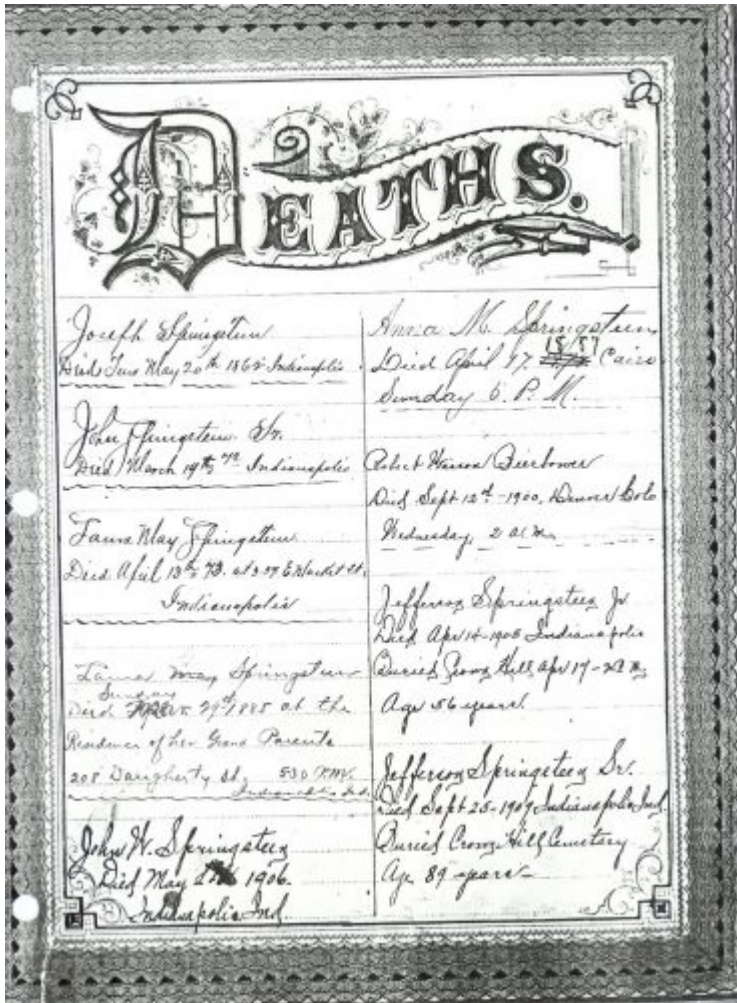 DEATHS.
Joseph Springsteen
Died May 20th 186 Indianapolis
John Springsteen Sr.
Died March 19th Indianapolis
May Springsteen
Died April 13th 73. at E Market St.
Indianapolis
May Springsteen
Sunday
Died 29th 1885 at the
Residence of her Grand Parents
208 Daugherty St. 530 P.M.
Indianapolis Ind.
John W. Springsteen
Died May 1906.
Indianapolis Ind.
Anna M. Springsteen
18/87
Died April 17 Cairo
Sunday 6 P. M.
Robert Bierbower
Died Sept 12th - 1900, Denver Colo
Wednesday, 2 a.m.
Jefferson Springsteen Jr
Died Apr 14 - 1908 Indianapolis
Buried Crown Hill Apr 17 -
Age 56 years
Jefferson Springsteen Sr.
Died Sept 25 - 1909 Indianapolis Ind.
Buried Crown Hill Cemetary
Age 89 years